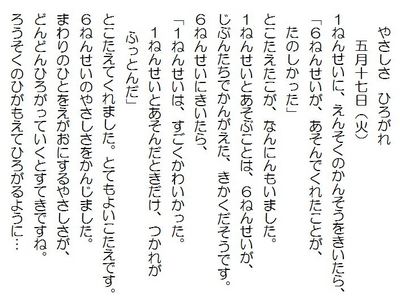 やさしさ ひろがれ
五月十七日（火）
１ねんせいに、えんそくのかんそうをきいたら、
「６ねんせいが、あそんでくれたことが、
たのしかった」
とこたえたこが、なんにんもいました。
１ねんせいとあそぶことは、６ねんせいが、
じぶんたちでかんがえた、きかくだそうです。
６ねんせいにきいたら、
「１ねんせいは、すごくかわいかった。
１ねんせいとあそんだときだけ、つかれが
ふっとんだ」
とこたえてくれました。とてもよいこたえです。
６ねんせいのやさしさをかんじました。
まわりのひとをえがおにするやさしさが、
どんどんひろがっていくとすてきですね。
ろうそくのひがもえてひろがるように…